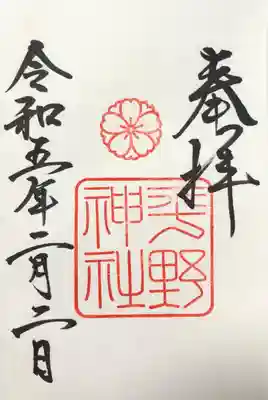 奉拝
平野
神社
令和五年二月二日